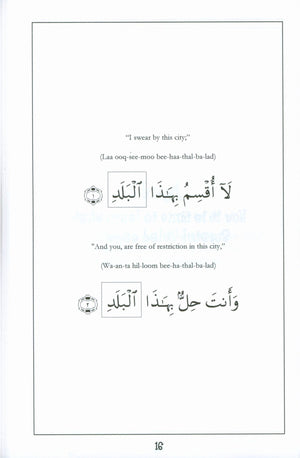 “I swear by this city;”
(Laa ooq-see-moo bee-haa-thal-ba-lad)
لَآ أُقْسِمُ بِهَٰذَا ٱلْبَلَدِ ١
"And you, are free of restriction in this city,"
(Wa-an-ta hil-loom bee-ha-thal-ba-lad)
وَأَنتَ حِلٌّۢ بِهَٰذَا ٱلْبَلَدِ ٢
16